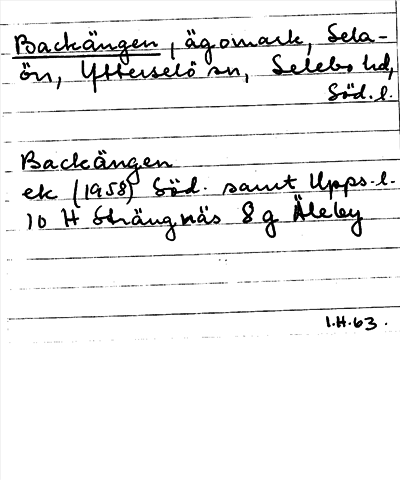 Backängen, ägomark, Sela-
ön, Ytterselö sn, Selebo hd,
Söd. l.
Backängen
ek (1958) Söd. samt Upps. l.
10 H Strängnäs 8 g Äleby
I.H.63.